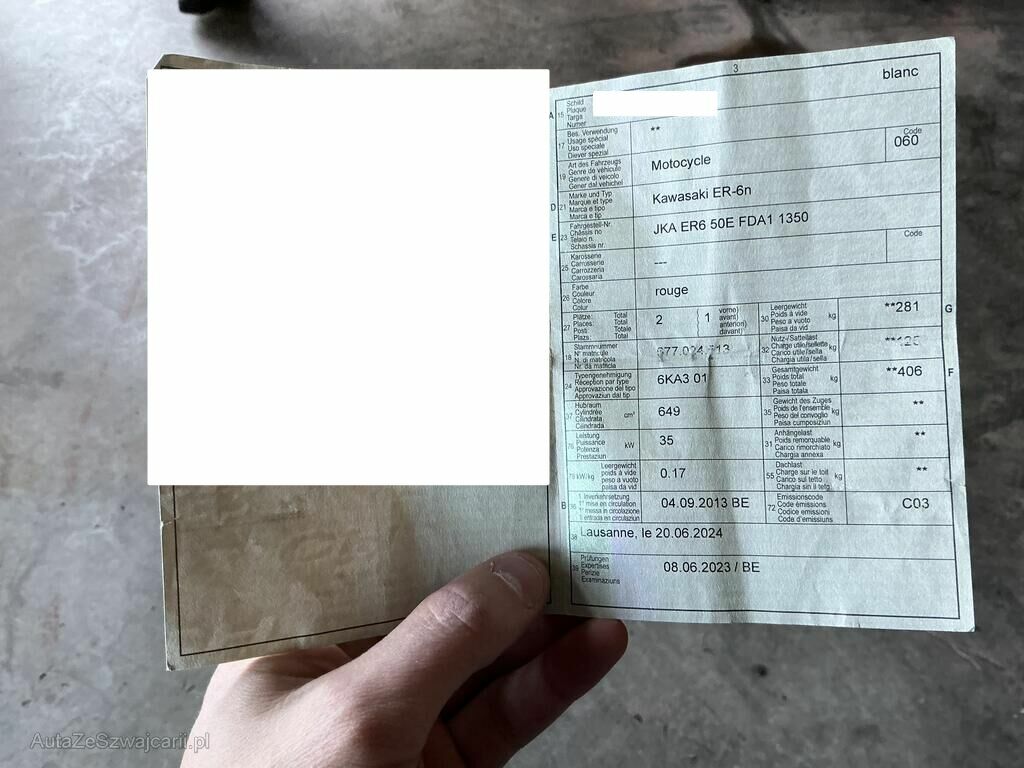 3
blanc
A 15 Schild
Plaque
Targa
Numer
17 Bes. Verwendung
Usage spécial
Uso speciale
Diever spezial
**
19 Art des Fahrzeugs
Genre de véhicule
Genere di veicolo
Gener dal vehichel
Motocycle
Code
060
D 21 Marke und Typ
Marque et type
Marca e tipo
Marca e tip
Kawasaki ER-6n
E 23 Fahrgestell-Nr.
Châssis no
Telaio n.
Schassis nr.
JKA ER6 50E FDA1 1350
25 Karosserie
Carrosserie
Carrozzeria
Carossaria
---
Code
26 Farbe
Couleur
Colore
Colur
rouge
27 Plätze: Total
Places: Total
Posti: Totale
Plazs: Total
2
1
vorne)
avant)
anteriori)
davant)
30 Leergewicht
Poids à vide
Peso a vuoto
Paisa da vid
kg
**281
G
18 Stammnummer
N° matricule
N. di matricola
Nr. da matricla
32 Nutz-/Sattellast
Charge utile/sellette
Carico utile/sella
Chargia utila/sella
kg
24 Typengenehmigung
Réception par type
Approvazione del tipo
Approvaziun dal tip
6KA3 01
33 Gesamtgewicht
Poids total
Peso totale
Paisa totala
kg
**406
F
37 Hubraum
Cylindrée
Cilindrata
Cilindrada
cm³
649
35 Gewicht des Zuges
Poids de l'ensemble
Peso del convoglio
Paisa cumposiziun
kg
**
76 Leistung
Puissance
Potenza
Prestaziun
kW
35
31 Anhängelast
Poids remorquable
Carico rimorchiato
Chargia annexa
kg
**
78 kW/kg Leergewicht
poids à vide
peso a vuoto
paisa da vid
0.17
55 Dachlast
Charge sur le toit
Carico sul tetto
Chargia sin il tetg
kg
**
B 36 1. Inverkehrsetzung
1re mise en circulation
1a messa in circolazione
1. entrada en circulaziun
04.09.2013 BE
72 Emissionscode
Code émissions
Codice emissioni
Code d'emissiuns
C03
38 Lausanne, le 20.06.2024
39 Prüfungen
Expertises
Perizie
Examinaziuns
08.06.2023 / BE
AutaZeSzwajcarii.pl